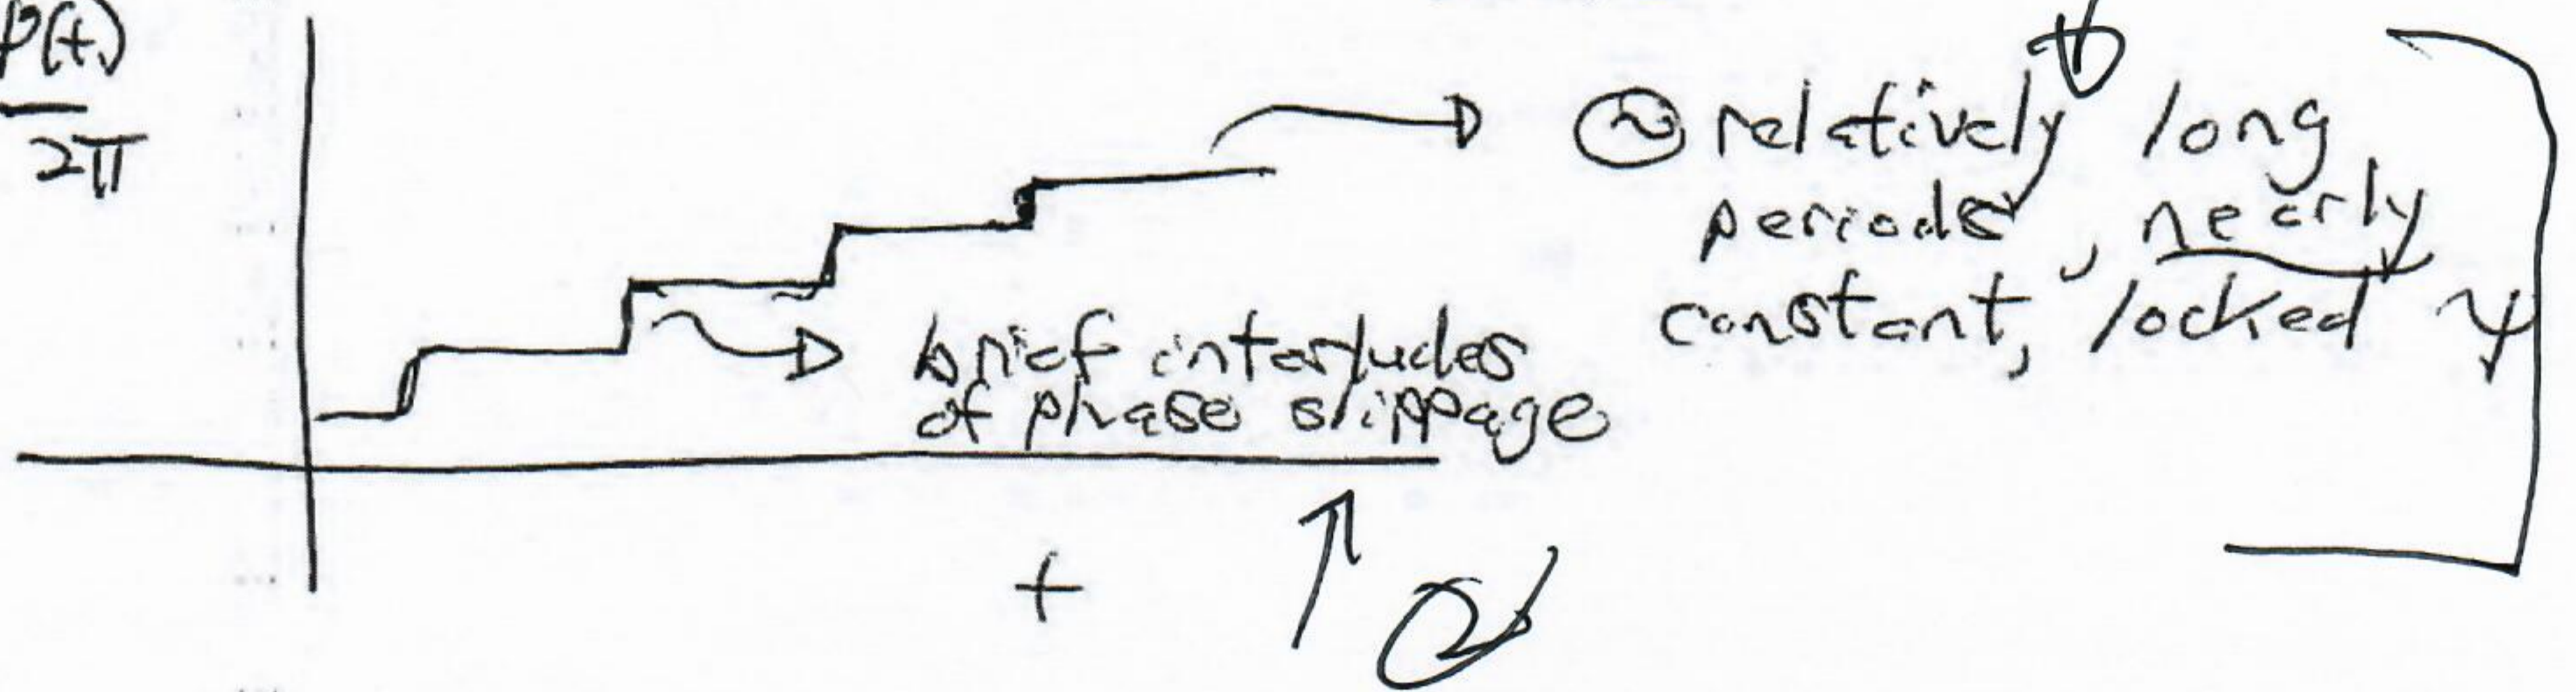 (t)
2π
~ relatively long
periods, nearly
constant, locked ψ
brief interludes
of phase slippage
t